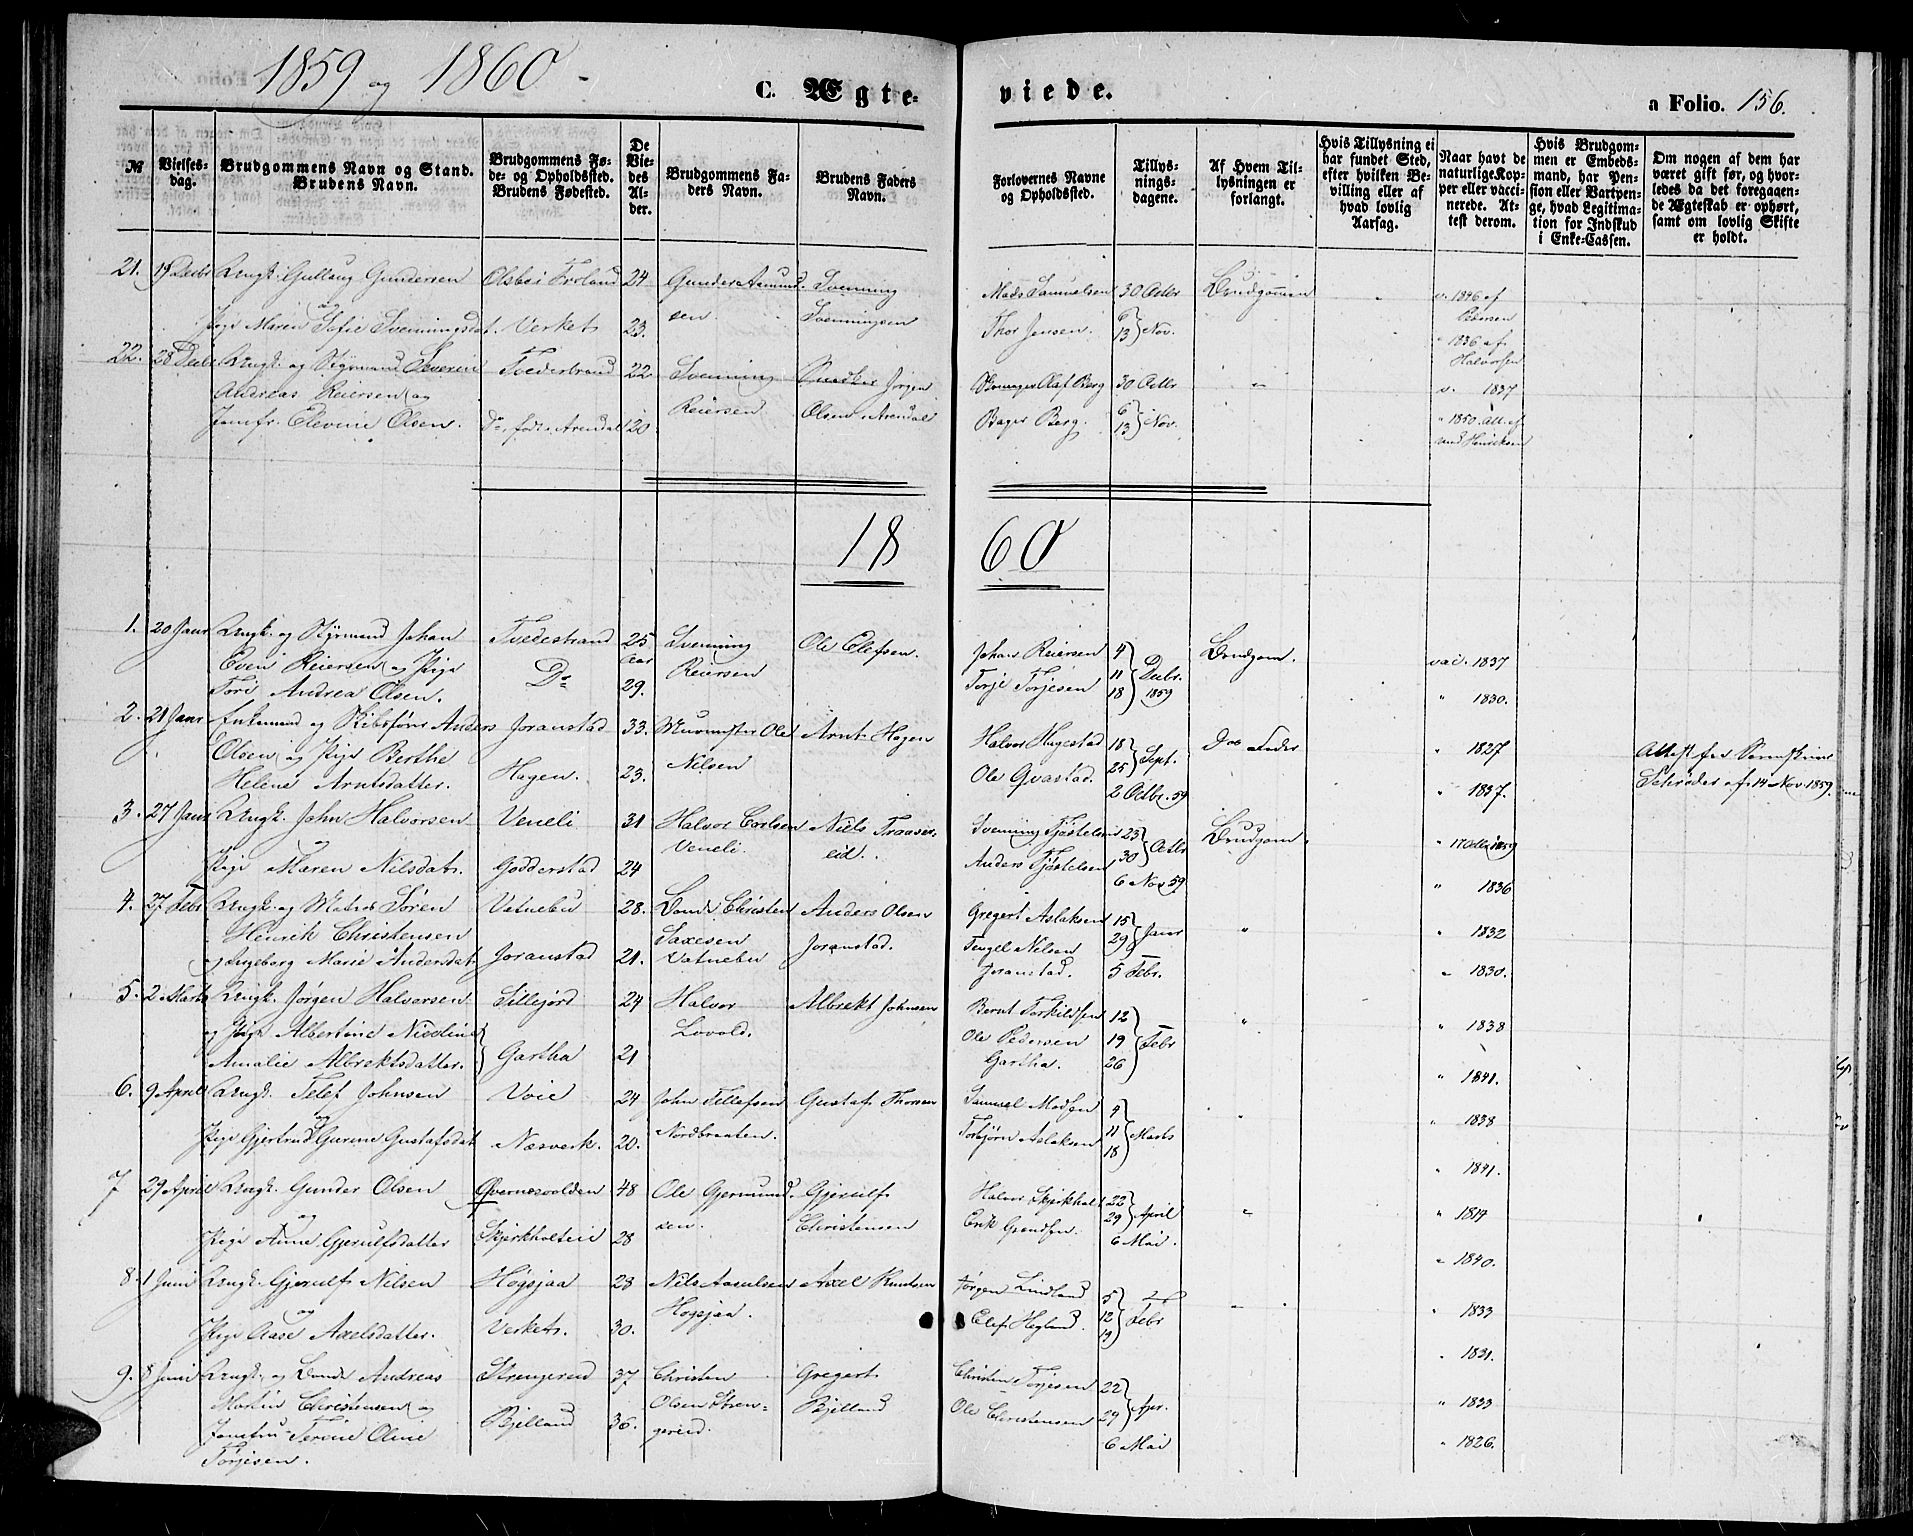 1859 og 1860
C. Ægte-
viede.
a Folio. 156.
№
Vielses-
dag.
Brudgommens Navn og Stand.
Brudens Navn.
Brudgommens Fø-
de- og Opholdssted.
Brudens Fødested.
De
Vie-
des
Al-
der.
Brudgommens Fa-
ders Navn.
Brudens Faders
Navn.
Forlovernes Navne
og Opholdssted.
Tillys-
nings-
dagene.
Af Hvem Til-
lysningen er
forlangt.
Hvis Tillysning ei
har fundet Sted,
efter hvilken Be-
villing eller af
hvad lovlig
Aarsag.
Naar havt de
naturlige Kop-
per eller vacci-
nerede. At-
test derom.
Hvis Brudgom-
men er Embeds-
mand, har Pen-
sion eller Vartpen-
ge, hvad Legitima-
tion for Indskud
i Enke-Cassen.
Om nogen af dem har
været gift før, og hvor-
ledes da det foregaaen-
de Ægteskab er ophørt,
samt om lovlig Skifte
er holdt.
21. 19 Decbr Ungk. Gullaug Gundersen 24 Gunder Aamund- Svenning Mads Samuelsen 30 Octbr Brudgommen v. 1846 af
og sen. Svenningsen Pedersen
Pige Maren Sofie Svenningsdat. Verket 23. Thor Jensen. 6 13 Nov. " 1836 af
Halvorsen
22. 28 Decbr Ungk. og Styrmand Severin Tvedestrand 22 Svenning Jørgen Olaf Berg 30 Octbr " v. 1837
Andreas Reiersen og Reiersen Olsen, Arendal
Jomfr. Elevine Olsen. Do, født i Arendal 20 Bager Berg. 6 13 Nov. " 1850. Att. af
1860
1. 20 Janr Ungk. og Styrmand Johan Tvedestrand 25 Svenning Ole Olefsen. Johan Reiersen 4 Brudgom. vac. 1837
Even Reiersen og Pige Aar Reiersen 11 Decbr.
Tori Andrea Olsen. Do 29. Torje Torjesen 18 1859 " 1830.
2. 21 Janr Enkemand og Skibsfører Anders Joranstad 33. Murmester Ole Arnt Hagen Halvor Hagestad 18 Do " 1827 Attest fra
Olsen og Pige Berthe Nilsen 25 Sept. Schrøder af 14 Nov. 1859.
Helene Arntsdatter. Hagen. 23. Ole Qvastad. 2 Octbr. 59 " 1837.
3. 27 Janr Ungk. John Halvorsen Veneli 31 Halvor Carlsen Niels Svenning Tjøstelsen 23 Brudgom
og Veneli. eid. 30 Octbr
Pige Maren Nilsdatr. Godderstad 24 Anders Tjøstelsen 6 Nov 59. " 1836
4. 27 Febr Ungk. og Matros Søren Vatnebu 28. Bonde Christen Anders Olsen Gregert Aslaksen 15 " " 1832
Henrik Christensen Saxesen Joranstad. 29 Janr
og Ingeborg Marie Andersdat. Joranstad 21. Vatnebu Tengel Nelsen
Joranstad. 5 Febr. " 1830.
5. 2 Marts Ungk. Jørgen Halvorsen Sillejord 24 Halvor Albrekt Johnsen Bernt Torkildsen 12 " " 1838
og Pige Albertine Nicoline Lovold. Ole Pedersen 19 Febr
Amalie Albrektsdatter. Gartha 21 Gartha. 26 " 1841.
6. 9 April Ungk. Telef Johnsen Voie 24 John Tellefsen Gustaf Thorsen Samuel Madsen 4 " " 1838
og Nordbraaten. 11 Marts
Pige Gjertrud Gurine Gustafsdat. Næsverk. 20. Torbjørn Aslaksen 18 " 1841.
7 29 April Ungk. Gunder Olsen Qvernesvolden 48 Ole Gjermund- Gjerulf Halvor Skjerkholt 22 " " 1817
og sen. Christensen 29 April
Pige Anne Gjerulfsdatter Skjerkholteie 28 Erik 6 Mai. " 1840.
8. 1 Juni Ungk. Gjerulf Nilsen Høgsjaa 28 Nils Aasulsen Axel Knutsen Jørgen Lindland 5 " " 1833
og Høgsjaa. 12 Febr
Pige Aase Axelsdatter. Verkets. 30. Olef Hegland. 19 " 1831.
9. 8 Juni Ungk. og Bonde Andreas Strengereid 37 Christen Gregert Christen Torjesen 22 " 1833
Martin Christensen og Olsen Stren- Bjelland 29 Apr.
Jomfru Terine Oline Bjelland 36. gereid. Ole Christensen 6 Mai " 1826.
Torjesen.